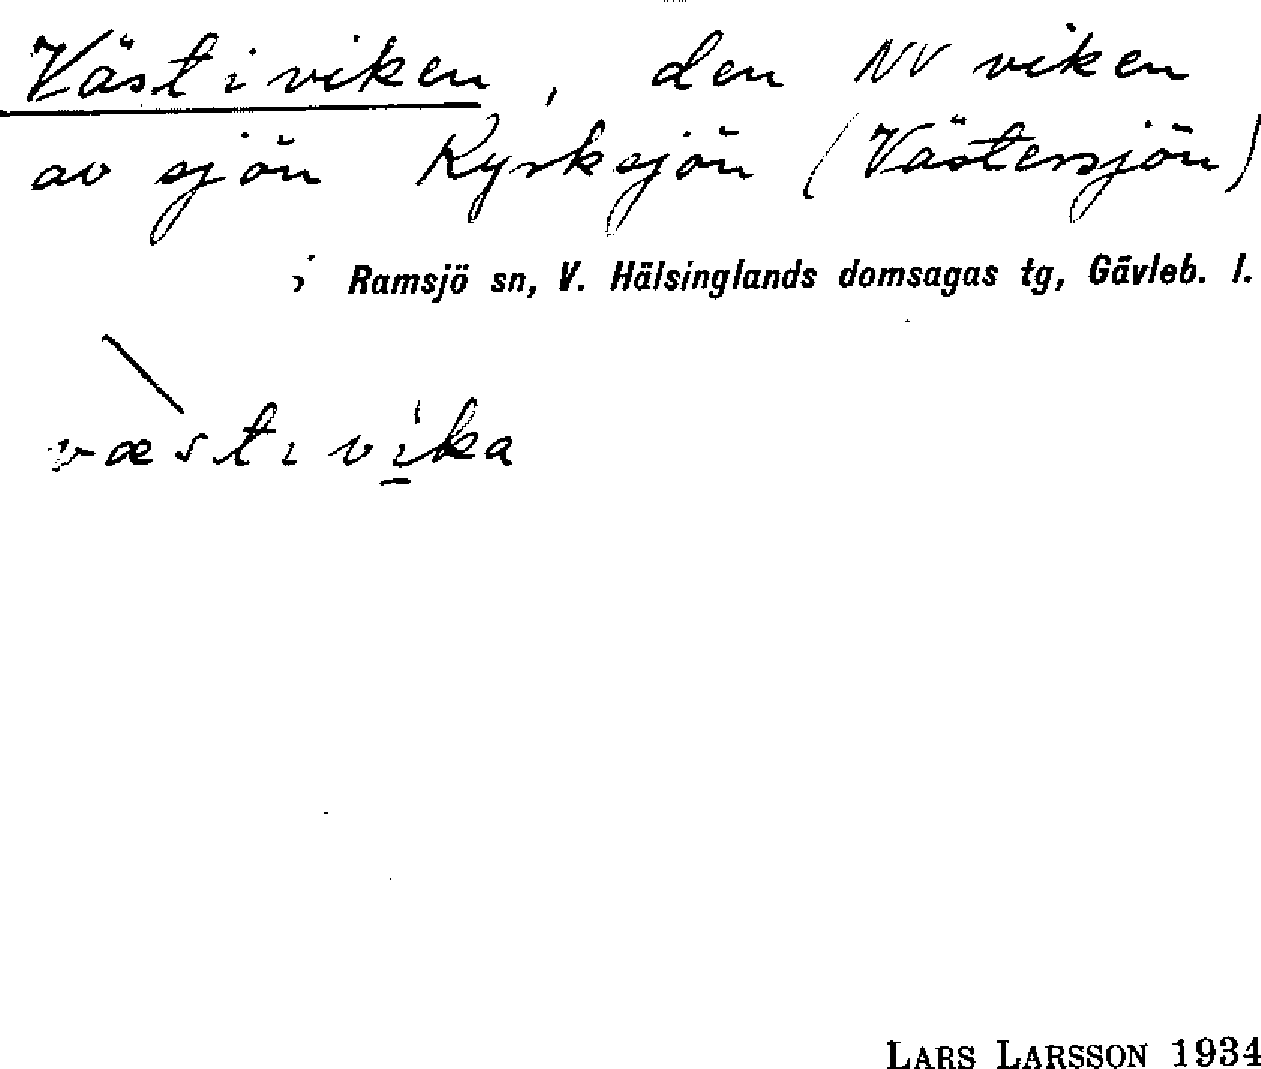 Västiviken, den NV viken
av sjön Kyrksjön (Västersjön)
i Ramsjö sn, V. Hälsinglands domsagas tg, Gävleb. l.
væstivika
LARS LARSSON 1934